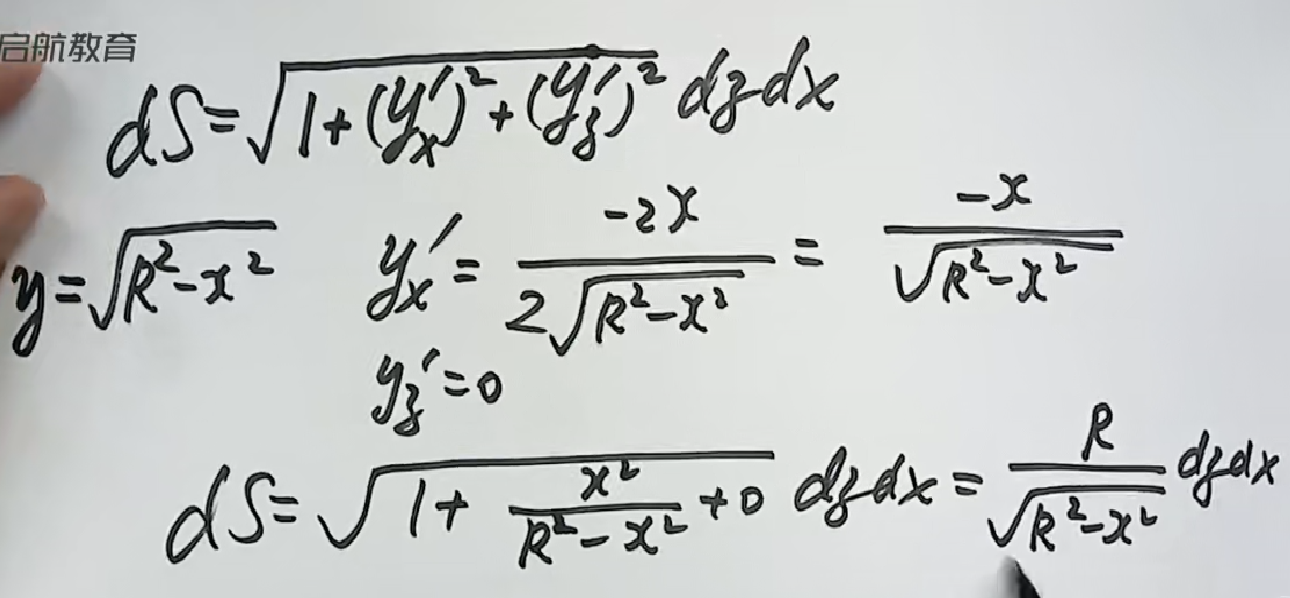 启航教育
dS=√(1+(y′ₓ)²+(y′_z)²) dzdx
y=√(R²-x²) yₓ′=-2x/(2√(R²-x²))=-x/√(R²-x²)
y_z′=0
dS=√(1+x²/(R²-x²)+0) dzdx=R/√(R²-x²) dzdx